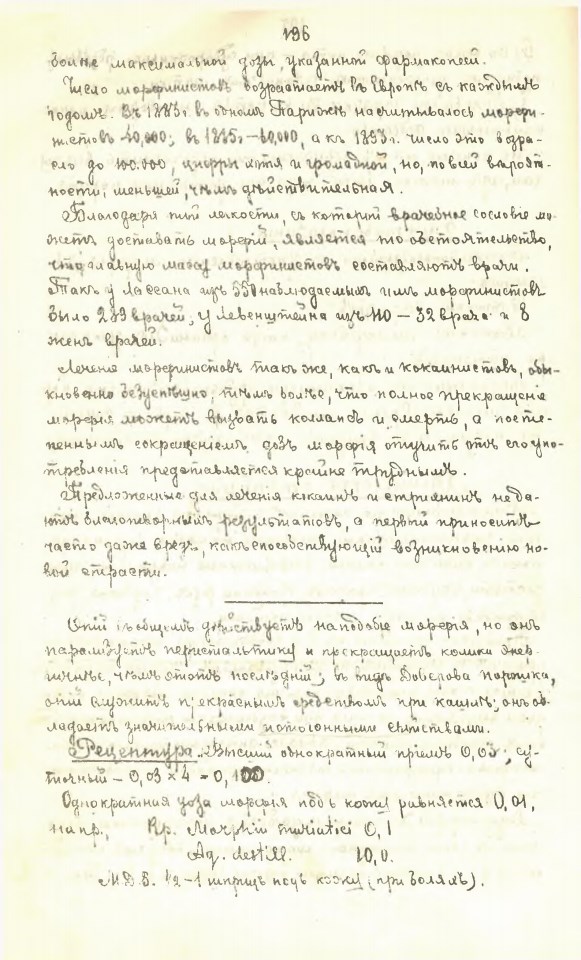 196
болѣе максимальной дозы, указанной фармакопеей.
Число морфинистовъ возрастаетъ въ Европѣ съ каждымъ
годомъ. Въ 1883г. въ одномъ Парижѣ насчитывалось морфи-
нистовъ 40,000; въ 1885г – 60,000, а къ 1893г. число это возра-
сло до 100.000, цифры хотя и громадной, но, по всей вѣроят-
ности, меньшей, чѣмъ дѣйствительная.
Благодаря той легкости, съ которой врачебное сословіе мо-
жетъ доставать морфій, является то обстоятельство,
что главную массу морфинистовъ составляютъ врачи.
Такъ у Лассана изъ 550 наблюдаемыхъ имъ морфинистовъ
было 289 врачей, у Левенштейна изъ 110 – 32 врача и 8
женъ врачей.
Леченіе морфинистовъ такъ же, какъ и кокаинистовъ, обы-
кновенно безуспѣшно, тѣмъ болѣе, что полное прекращеніе
морфія можетъ вызвать коллапсъ и смерть, а посте-
пеннымъ сокращеніемъ дозъ морфія отучить отъ его упо-
требленія представляется крайне труднымъ.
Предложенные для леченія кокаинъ и стрихнинъ не да-
ютъ благотворныхъ результатовъ, а первый приноситъ
часто даже вредъ, какъ способствующій возникновенію но-
вой страсти.
Опій вообщемъ дѣйствуетъ на подобіе морфія, но онъ
парализуетъ перистальтику и прекращаетъ колики энер-
гичнѣе, чѣмъ этотъ послѣдній; въ видѣ Доверова порошка,
опій служитъ прекраснымъ средствомъ при кашлѣ; онъ об-
ладаетъ значительными потогонными свойствами.
Рецептура. Высшій однократный пріемъ 0,03; су-
точный – 0,03 × 4 = 0,100.
Однократная доза морфія подъ кожу равняется 0,01,
напр., Rp. Morphii muriatici 0,1
Aq. destill. 10,0.
М.D.S. 1/2–1 шприцъ подъ кожу (при боляхъ).